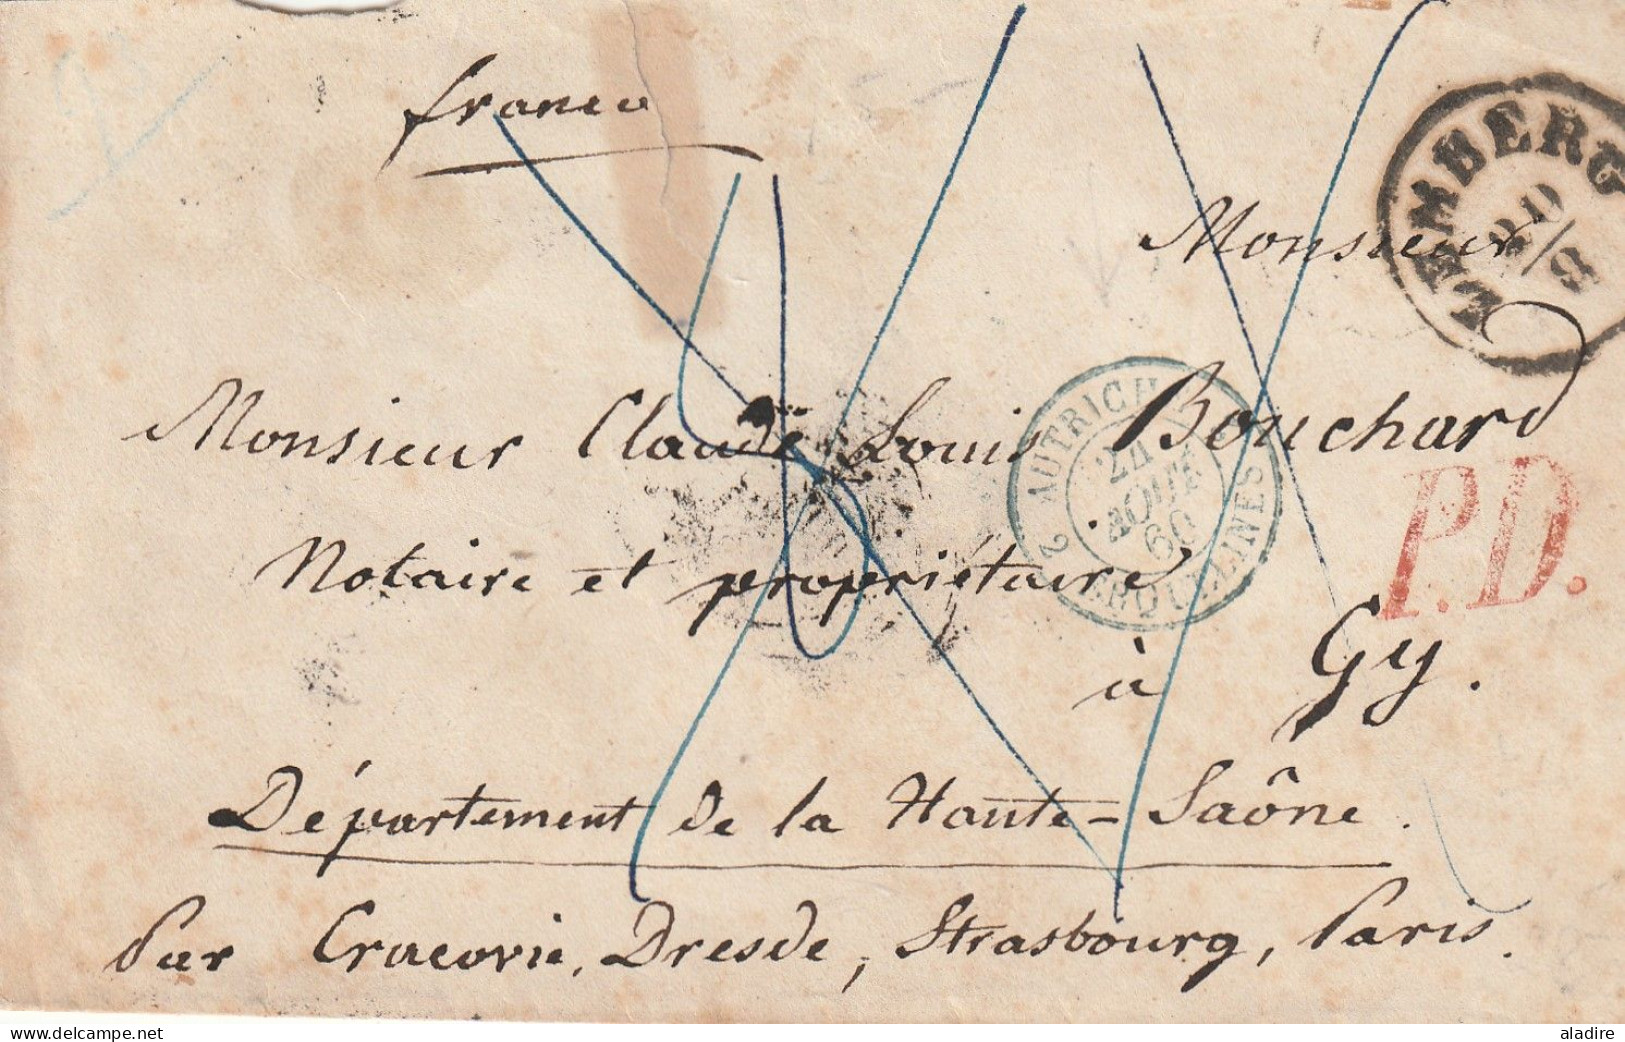 franco
LEMBERG
20/8
Monsieur
Monsieur Claude Louis Bouchard
2 AUTRICHE ERQUELINES 2
24
AOUT
60
P.D.
Notaire et propriétaire
à Gy.
Département de la Haute-Saône.
Par Cracovie, Dresde, Strasbourg, Paris.
www.delcampe.net
aladire